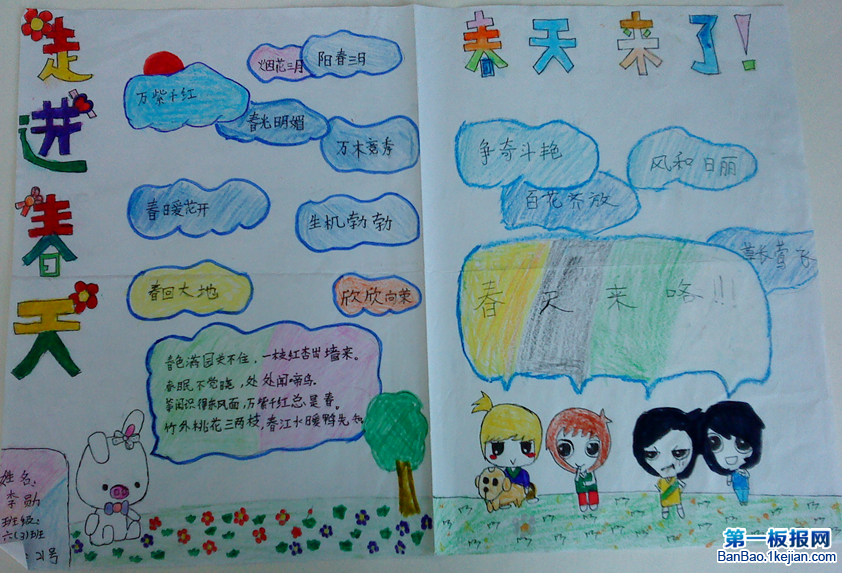 走进春天
万紫千红
烟花三月
阳春三月
春光明媚
春暖花开
生机勃勃
春回大地
欣欣向荣
春色满园关不住，一枝红杏出墙来。
春眠不觉晓，处处闻啼鸟。
等闲识得春风面，万紫千红总是春。
竹外桃花三两枝，春江水暖鸭先知
姓名：
李
班级：
六(3)班
21号
春天来了！
争奇斗艳
百花齐放
风和日丽
草长莺飞
春天来咯!!!
第一板报网
BanBao.1kejian.com